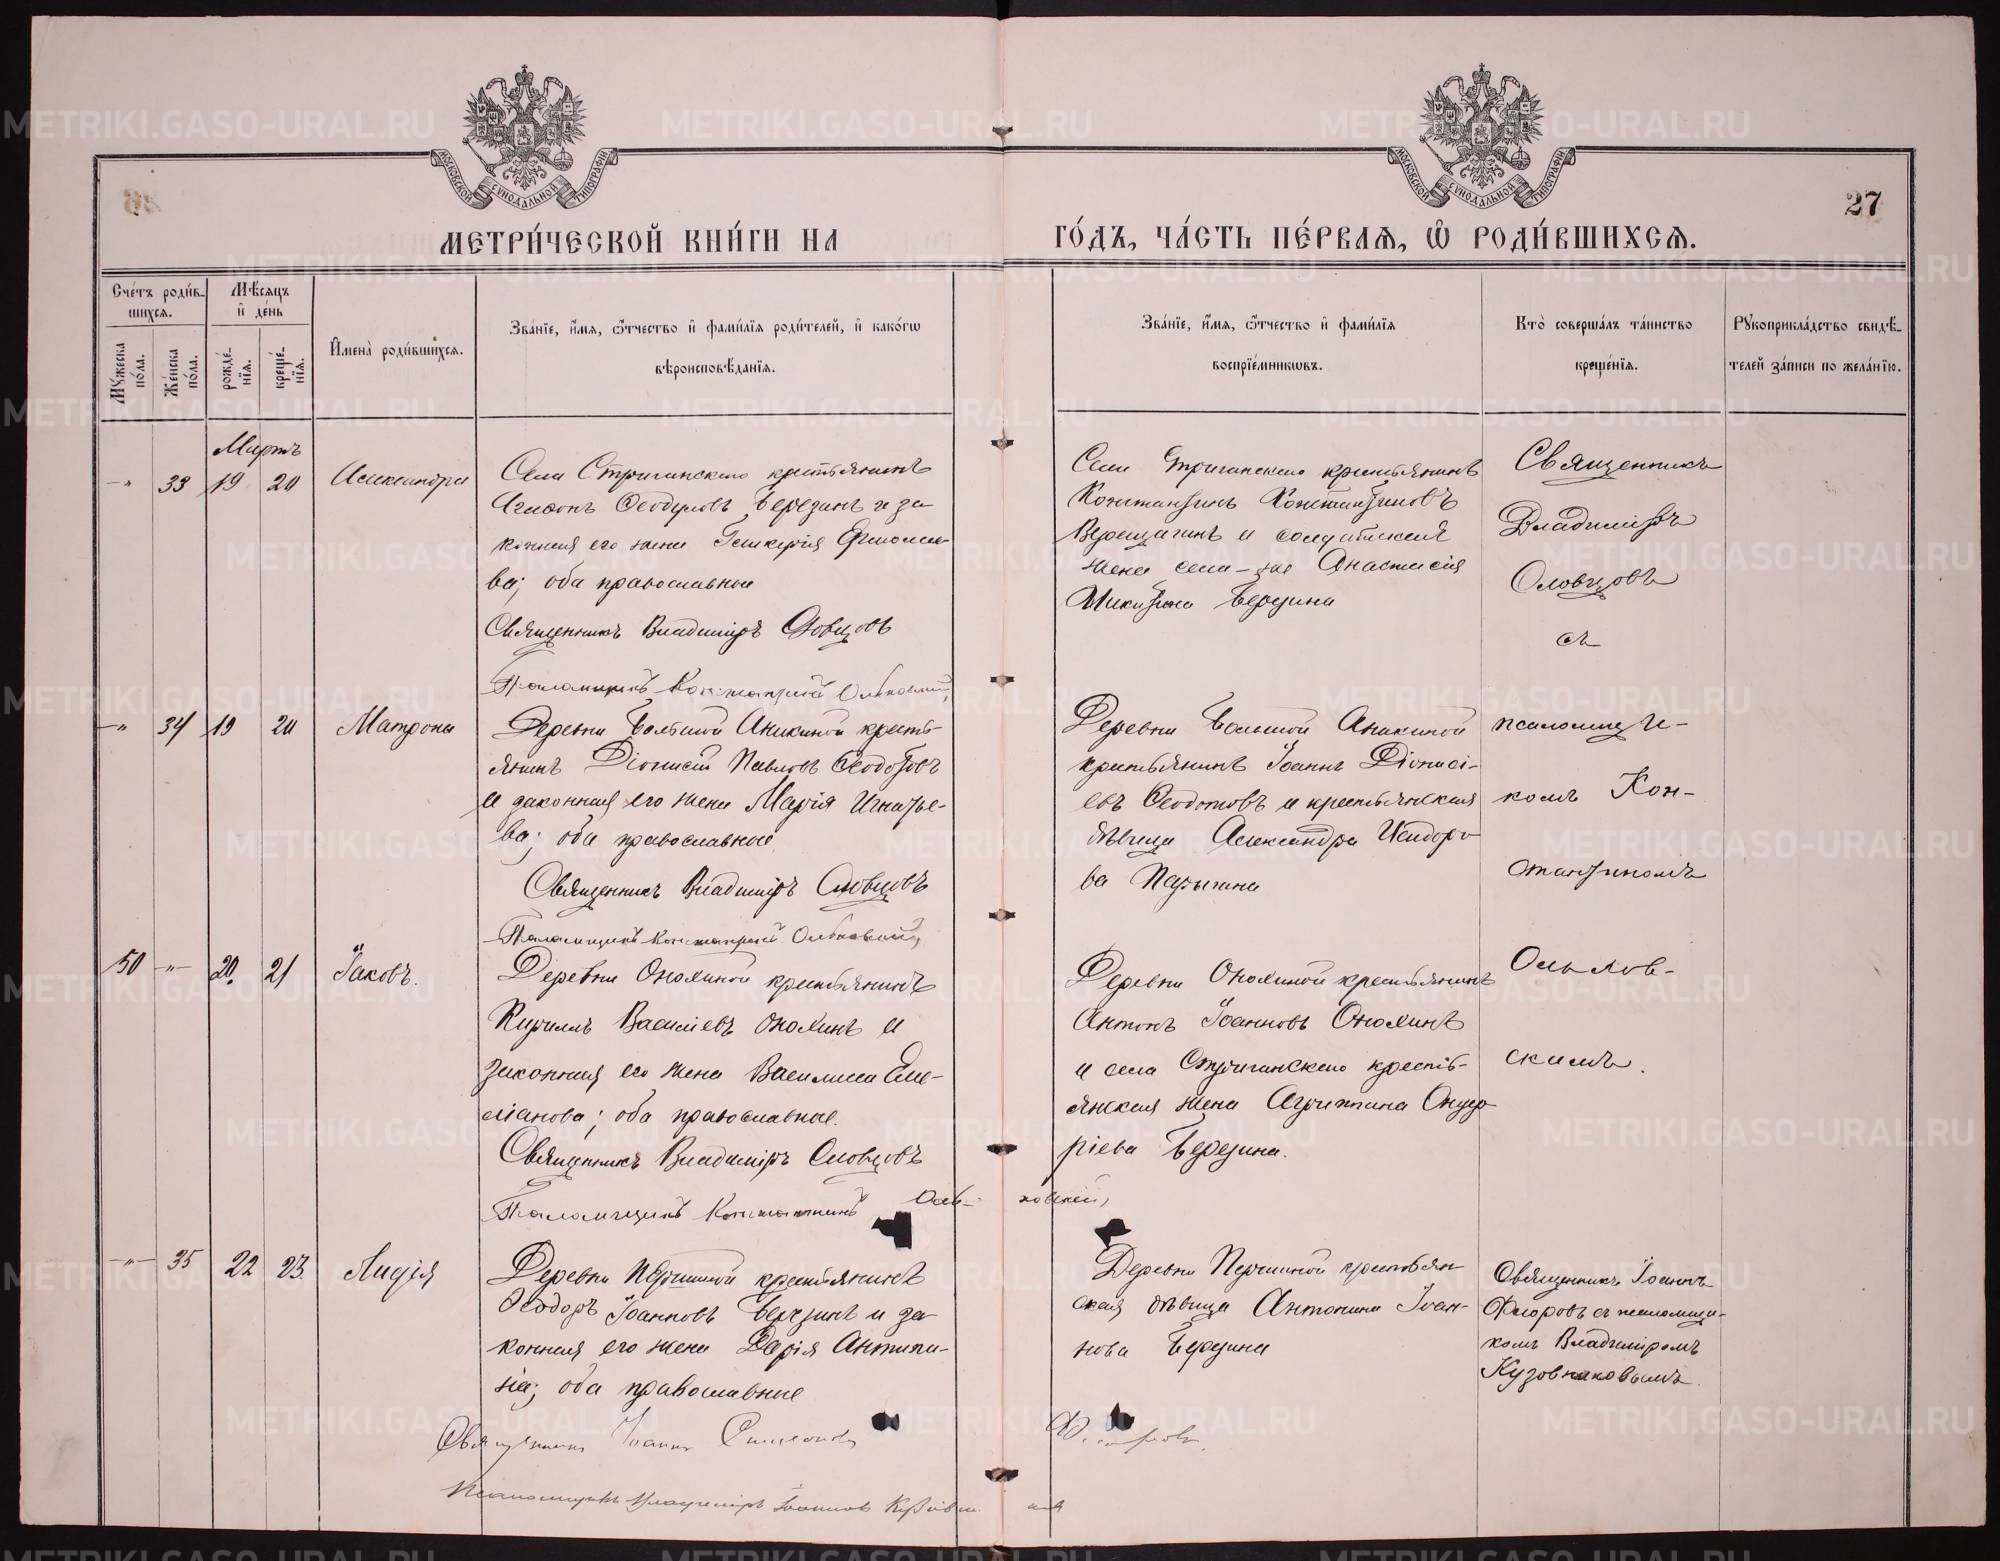 27
МЕТРИ́ЧЕСКОЙ КНИ́ГИ НА
ГО́ДЪ, ЧА́СТЬ ПЕ́РВАЯ, Ѡ РОДИ́ВШИХСЯ.
МОСКОВСКОЙ СУНОДАЛЬНОЙ ТИПОГРАФІИ
МОСКОВСКОЙ СУНОДАЛЬНОЙ ТИПОГРАФІИ
Сче́тъ роди́в-
шихся.
Мѣ́сяцъ
и҆ де́нь
Мꙋ́жеска по́ла.
Же́нска по́ла.
рожде́-
нїя.
креще́-
нїя.
И҆мена̀ роди́вшихся.
Зва́нїе, и҆́мя, ѻ҆́тчество и҆ фами́лїя роди́телей, и҆ како́гѡ
вѣроисповѣ́данїя.
Зва́нїе, и҆́мя, ѻ҆́тчество и҆ фами́лїя
воспрїе́мникѡвъ.
Кто̀ соверша́лъ та́инство
креще́нїя.
Рꙋкоприкла́дство свидѣ́-
телей за́писи по жела́нїю.
Мартъ
-"- 33 19 20 Александра
Села Стриганскаго крестьянинъ
Агаѳонъ Ѳеодуловъ Березинъ и за-
конная его жена Гликерія Ермолае-
ва; оба православные
Священникъ Владиміръ Словцовъ
Псаломщикъ Константинъ Ольховскій
Села Стриганскаго крестьянинъ
Константинъ Константиновъ
Верещагинъ и солдатская
жена села-же Анастасія
Никитина Березина
Священникъ
Владиміръ
Словцовъ
съ
-"- 34 19 20 Матрона
Деревни Большой Аникиной кресть-
янинъ Діонисій Павловъ Ѳеодотовъ
и законная его жена Марія Игнатье-
ва; оба православные
Священникъ Владиміръ Словцовъ
Псаломщикъ Константинъ Ольховскій
Деревни Большой Аникиной
крестьянинъ Іоаннъ Діонисі-
евъ Ѳеодотовъ и крестьянская
дѣвица Александра Исидоро-
ва
псаломщи-
комъ Кон-
стантиномъ
50 -"- 20. 21 Іаковъ.
Деревни Онохиной крестьянинъ
Кириллъ Василіевъ Онохинъ и
законная его жена Василисса Еме-
ліанова; оба православные.
Священникъ Владиміръ Словцовъ
Псаломщикъ Константинъ Оль-ховскій
Деревни Онохиной крестьянинъ
Антонъ Іоанновъ Онохинъ
и села Стриганскаго кресть-
янская жена Агриппина
ріева Березина.
Ольхов-
скимъ.
-"- 35 22 23 Лидія
Деревни Першиной крестьянинъ
Ѳеодоръ Іоанновъ Березинъ и за-
конная его жена Дарія Антипи-
на; оба православные
Священникъ Іоаннъ
Деревни Першиной крестьян-
ская дѣвица Антонина Іоан-
нова Березина
Священникъ Іоаннъ
съ псаломщи-
комъ Владиміромъ
Кузовниковымъ.
Псаломщикъ Владиміръ Іоанновъ
METRIKI.GASO-URAL.RU